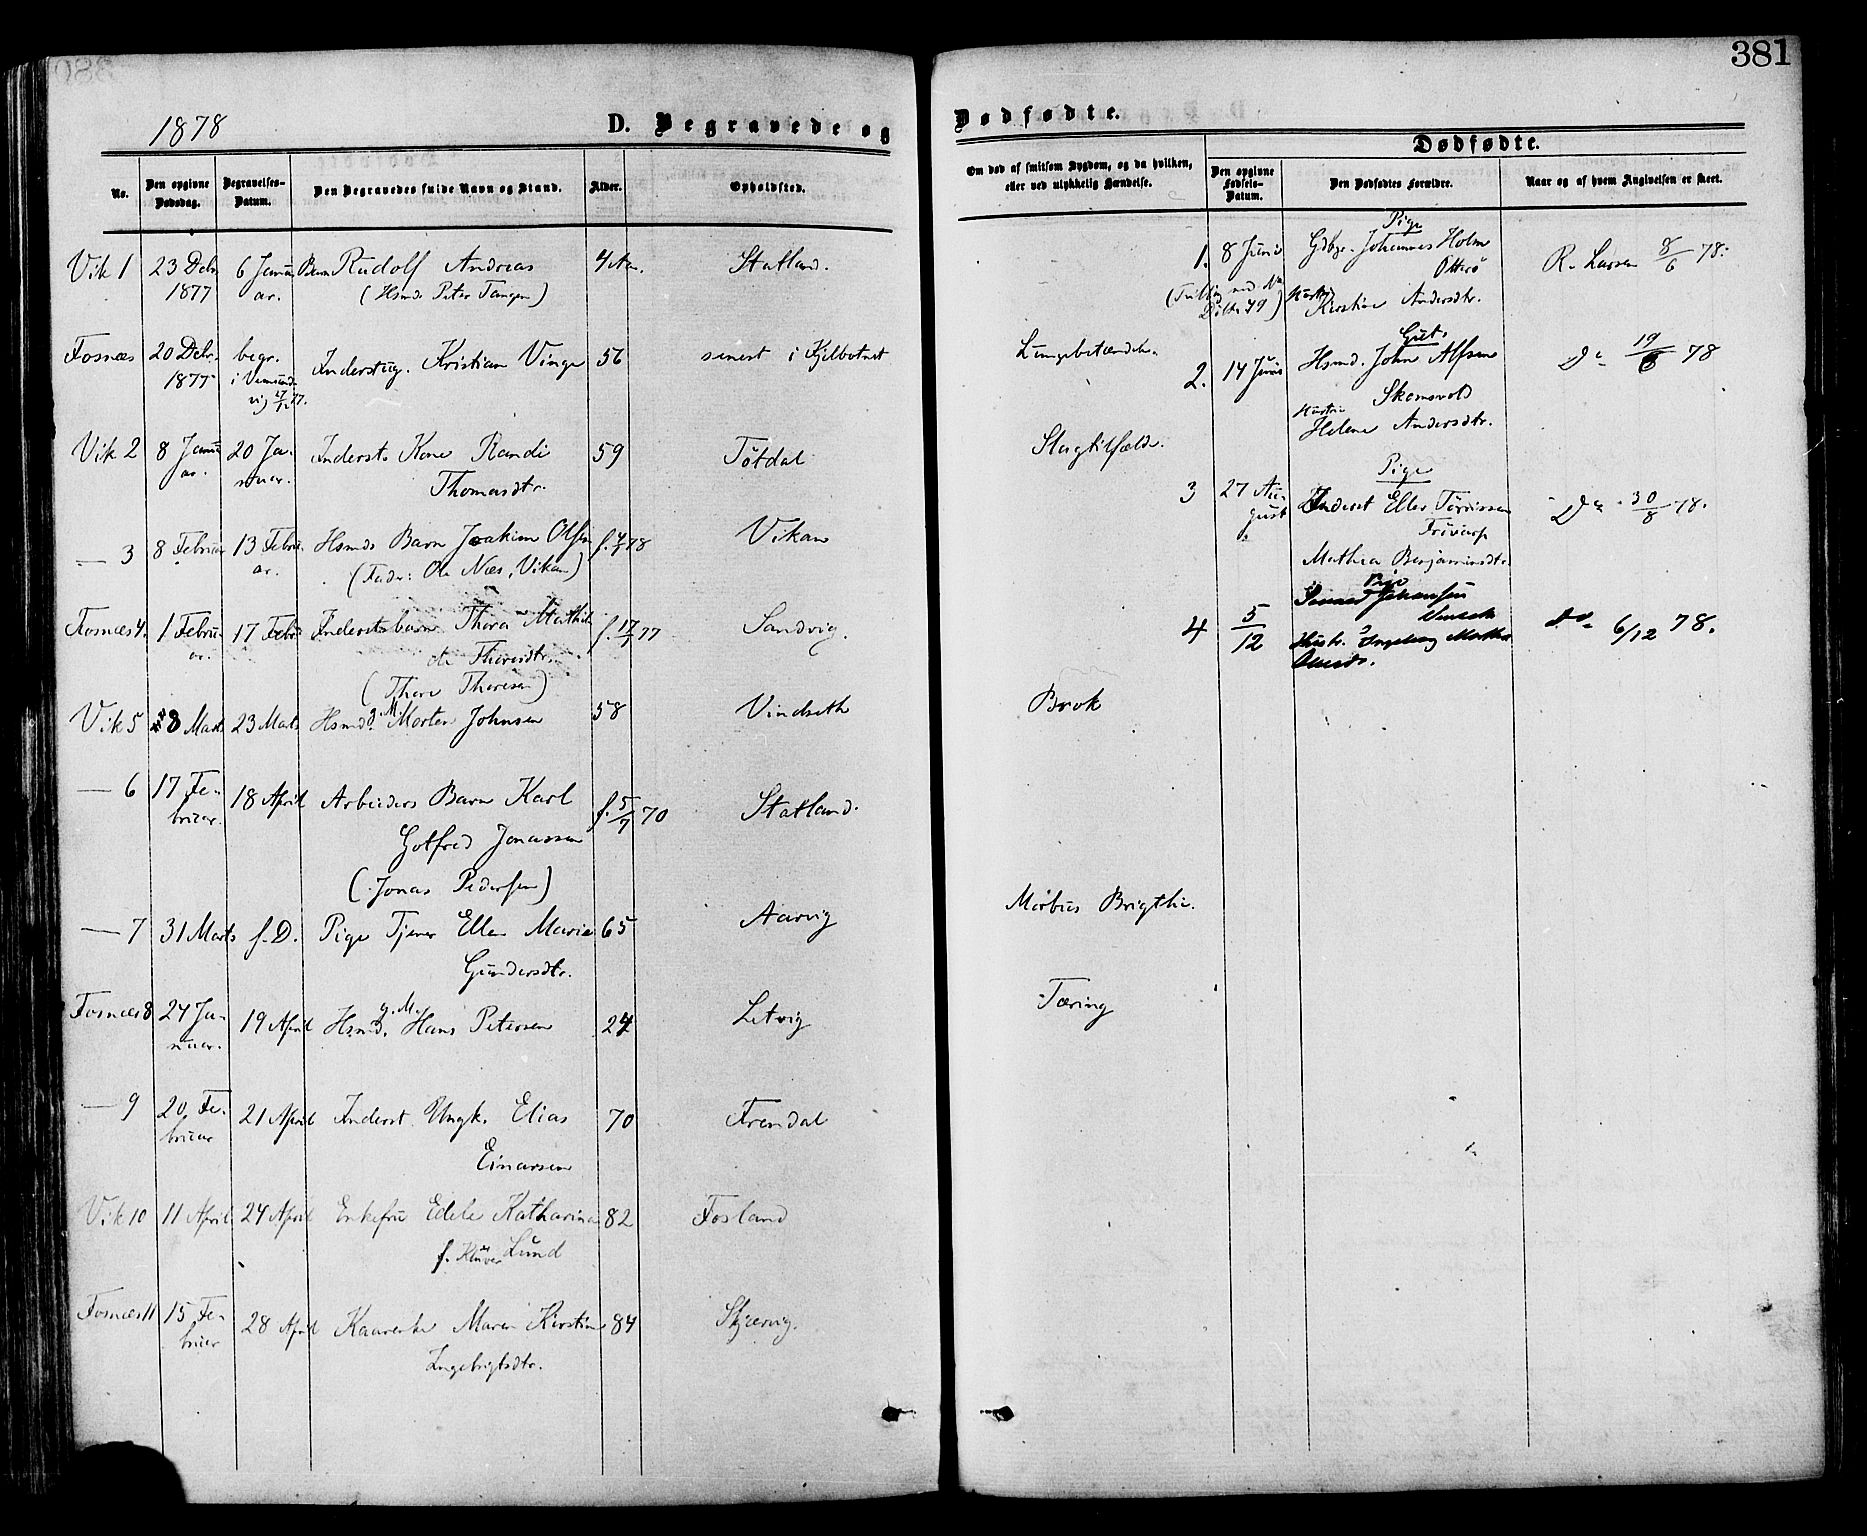 381
1878
D. Begravede og Dødfødte.
No.
Den opgivne Dødsdag.
Begravelses-Datum.
Den Begravedes fulde Navn og Stand.
Alder.
Opholdsted.
Om død af smitsom Sygdom, og da hvilken, eller ved ulykkelig Hændelse.
Dødfødte.
Den opgivne Fødsels-Datum.
Den Dødfødtes Forældre.
Naar og af hvem Angivelsen er skeet.
Vik 1 23 Debr. 6 Janu- Barn Rudolf Andreas 4 Aar. Statland.
1877 ar. (Hsmd. Peter Tangen)
Fosnæs 20 Debr. begr. Inderstug. Kristian Vinge 56 senest i Kjelbotnet Lungebetændelse.
1877 i Vemund-
vig 27/12 77.
Vik 2 8 Janu- 20 Ja- Inderst. Kone Randi 59 Tøtdal Slagtilfælde.
ar. nuar. Thomasdtr.
— 3 8 Februar 13 Febru- Hsmds Barn Joakim Olsen f. 4/1 78 Vikan
ar. (Fader: Ole Næs, Vikan)
Fosnæs 4. 1 Febru- 17 Febr. Inderstsbarn Thora Mathil- f. 17/7 77 Sandvig.
ar. de Thoresdtr.
(Thore Thoresen)
Vik 5 8 Marts 23 Marts Hsmd. g. M. Morten Johnsen 58 Vindseth Brok
— 6 17 Fe- 18 April Arbeiders Barn Karl f. 5/7 70 Statland.
bruar. Gotfred Jonassen
(Jonas Pedersen)
— 7 31 Marts f. D. Pige Tjener Ellen Maria 65 Aarvig Morbus Brigthi.
Gundersdtr.
Fosnæs 8 24 Ja- 19 April Hsmd. g. M. Hans Petersen 24 Letvig Tæring
nuar.
— 9 20. Fe- 21 April Inderst Ungk. Elias 70 Frendal
bruar Einarsen
Vik 10 11 April 24 April Enkefru Edele Katharina 82 Fosland
f. Klüver Lund
Fosnæs 11 15 Fe- 28 April Kaarenke Maren Kirstine 84 Skjærvig.
bruar Ingebrigtsdtr.
Pige
1. 8 Juni Gdbgr. Johannes Holm R. Larsen 8/6 78.
Otterø
(Tvilling ved No
Døbte 49) Hustru Kirstine Andersdtr.
Gut.
2. 14 Juni Hsmd. John Alfsen Do. 19/6 78
Skomsvold
Hustru
Helene Andersdtr.
Pige
3 27 Au- Inderst Eller Do. 30/8 78.
gust
Mathea Benjaminsdtr.
Pige
4 5/12 Johansen Do. 6/12 78.
Vinseth
Hustr. Ingeborg Martha